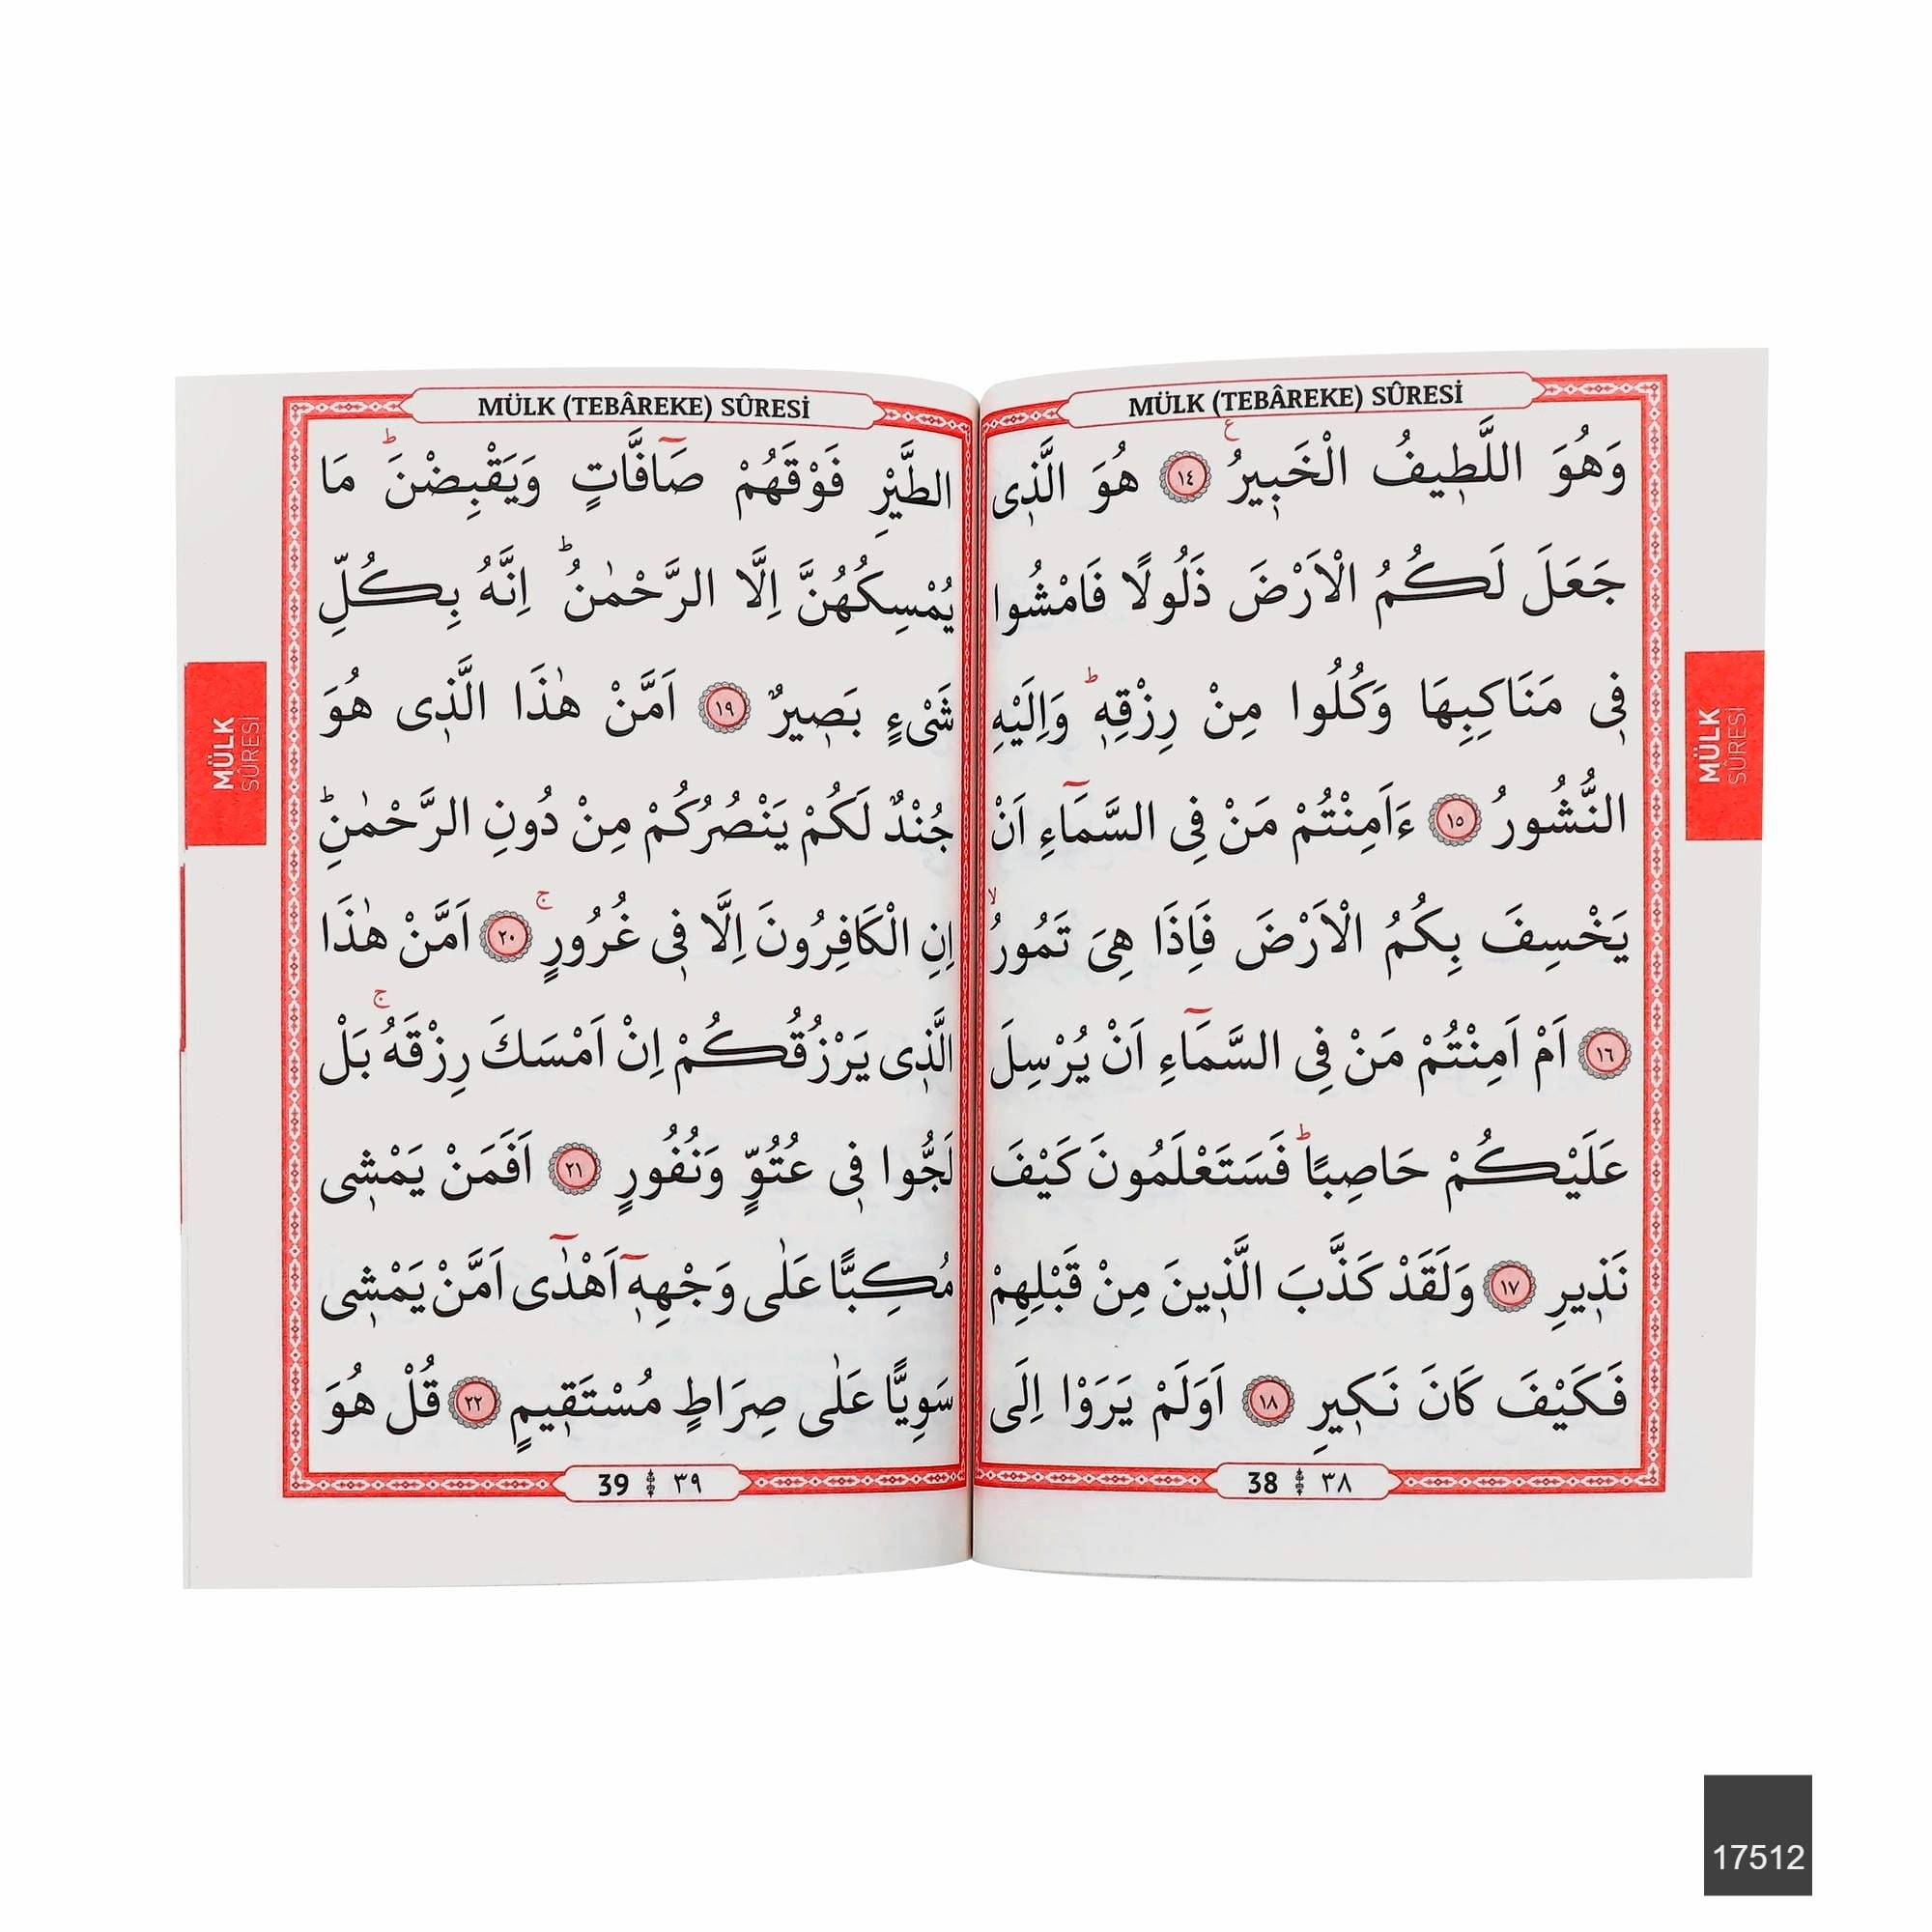 MÜLK (TEBÂREKE) SÛRESİ
وَهُوَ اللَّطٖيفُ الْخَبٖيرُ ࣖ ١٤ هُوَ الَّذٖى
جَعَلَ لَكُمُ الْاَرْضَ ذَلُولًا فَامْشُوا
فٖى مَنَاكِبِهَا وَكُلُوا مِنْ رِزْقِهٖؕ وَاِلَيْهِ
النُّشُورُ ١٥ ءَاَمِنْتُمْ مَنْ فِى السَّمَٓاءِ اَنْ
يَخْسِفَ بِكُمُ الْاَرْضَ فَاِذَا هِىَ تَمُورُۙ
١٦ اَمْ اَمِنْتُمْ مَنْ فِى السَّمَٓاءِ اَنْ يُرْسِلَ
عَلَيْكُمْ حَاصِبًاؕ فَسَتَعْلَمُونَ كَيْفَ
نَذٖيرِ ١٧ وَلَقَدْ كَذَّبَ الَّذٖينَ مِنْ قَبْلِهِمْ
فَكَيْفَ كَانَ نَكٖيرِ ١٨ اَوَلَمْ يَرَوْا اِلَى
38 ٣٨
MÜLK
SÛRESİ
MÜLK (TEBÂREKE) SÛRESİ
الطَّيْرِ فَوْقَهُمْ صَٓافَّاتٍ وَيَقْبِضْنَؕ مَا
يُمْسِكُهُنَّ اِلَّا الرَّحْمٰنُؕ اِنَّهُ بِكُلِّ
شَىْءٍ بَصٖيرٌ ١٩ اَمَّنْ هٰذَا الَّذٖى هُوَ
جُنْدٌ لَكُمْ يَنْصُرُكُمْ مِنْ دُونِ الرَّحْمٰنِؕ
اِنِ الْكَافِرُونَ اِلَّا فٖى غُرُورٍۚ ٢٠ اَمَّنْ هٰذَا
الَّذٖى يَرْزُقُكُمْ اِنْ اَمْسَكَ رِزْقَهُۚ بَلْ
لَجُّوا فٖى عُتُوٍّ وَنُفُورٍ ٢١ اَفَمَنْ يَمْشٖى
مُكِبًّا عَلٰى وَجْهِهٖٓ اَهْدٰٓى اَمَّنْ يَمْشٖى
سَوِيًّا عَلٰى صِرَاطٍ مُسْتَقٖيمٍ ٢٢ قُلْ هُوَ
39 ٣٩
MÜLK
SÛRESİ
17512